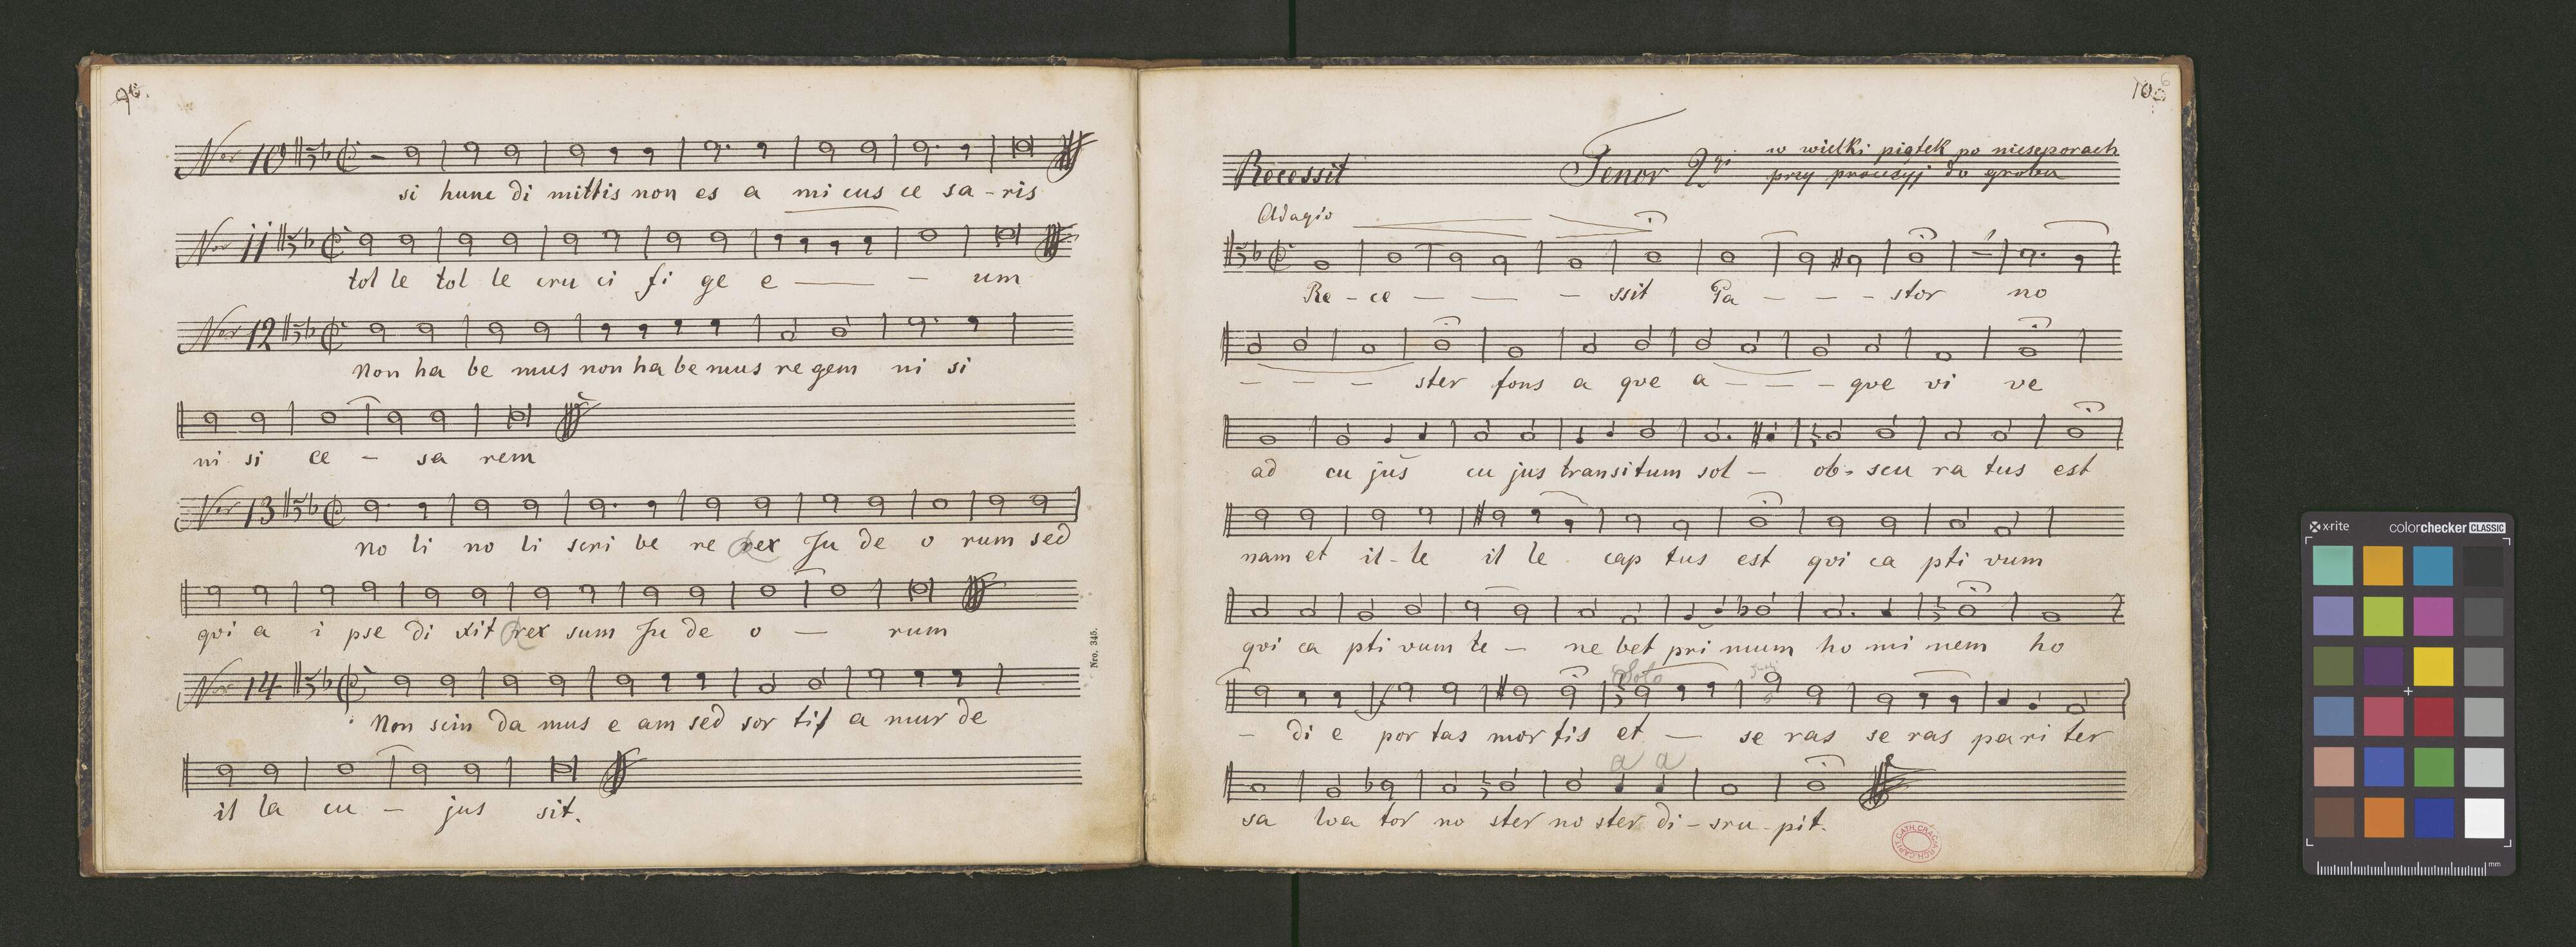 Nro 10
si hunc di mittis non es a mi cus ce sa - ris
Nro 11
tol le tol le cru ci fi ge e — - um
Nro 12
Non ha be mus non ha be mus re gem ni si
ni si ce - sa rem
Nro 13
no li no li scri be re rex Ju de o rum sed
qvi a i pse di xit rex sum Ju de o — rum
Nro 14
Non scin da mus e am sed sor tis a mur de
il la cu - jus sit.
Nro. 345.
Recessit Tenor 2gi w wielki piątek po nieszporach
przy procesyj do grobu
Adagio
Re - ce - — - ssit Pa - - - stor no
- - - ster fons a qve a - - - qve vi ve
ad cu jus cu jus transitum sol - ob- scu ra tus est
nam et il - le il le cap tus est qvi ca pti vum
qvi ca pti vum te - ne bet pri mum ho mi nem ho
Solo
- di e por tas mor tis et — se ras se ras pa ri ter
a a
sa lva tor no ster no ster di - sru - pit.
x-rite colorchecker CLASSIC
mm